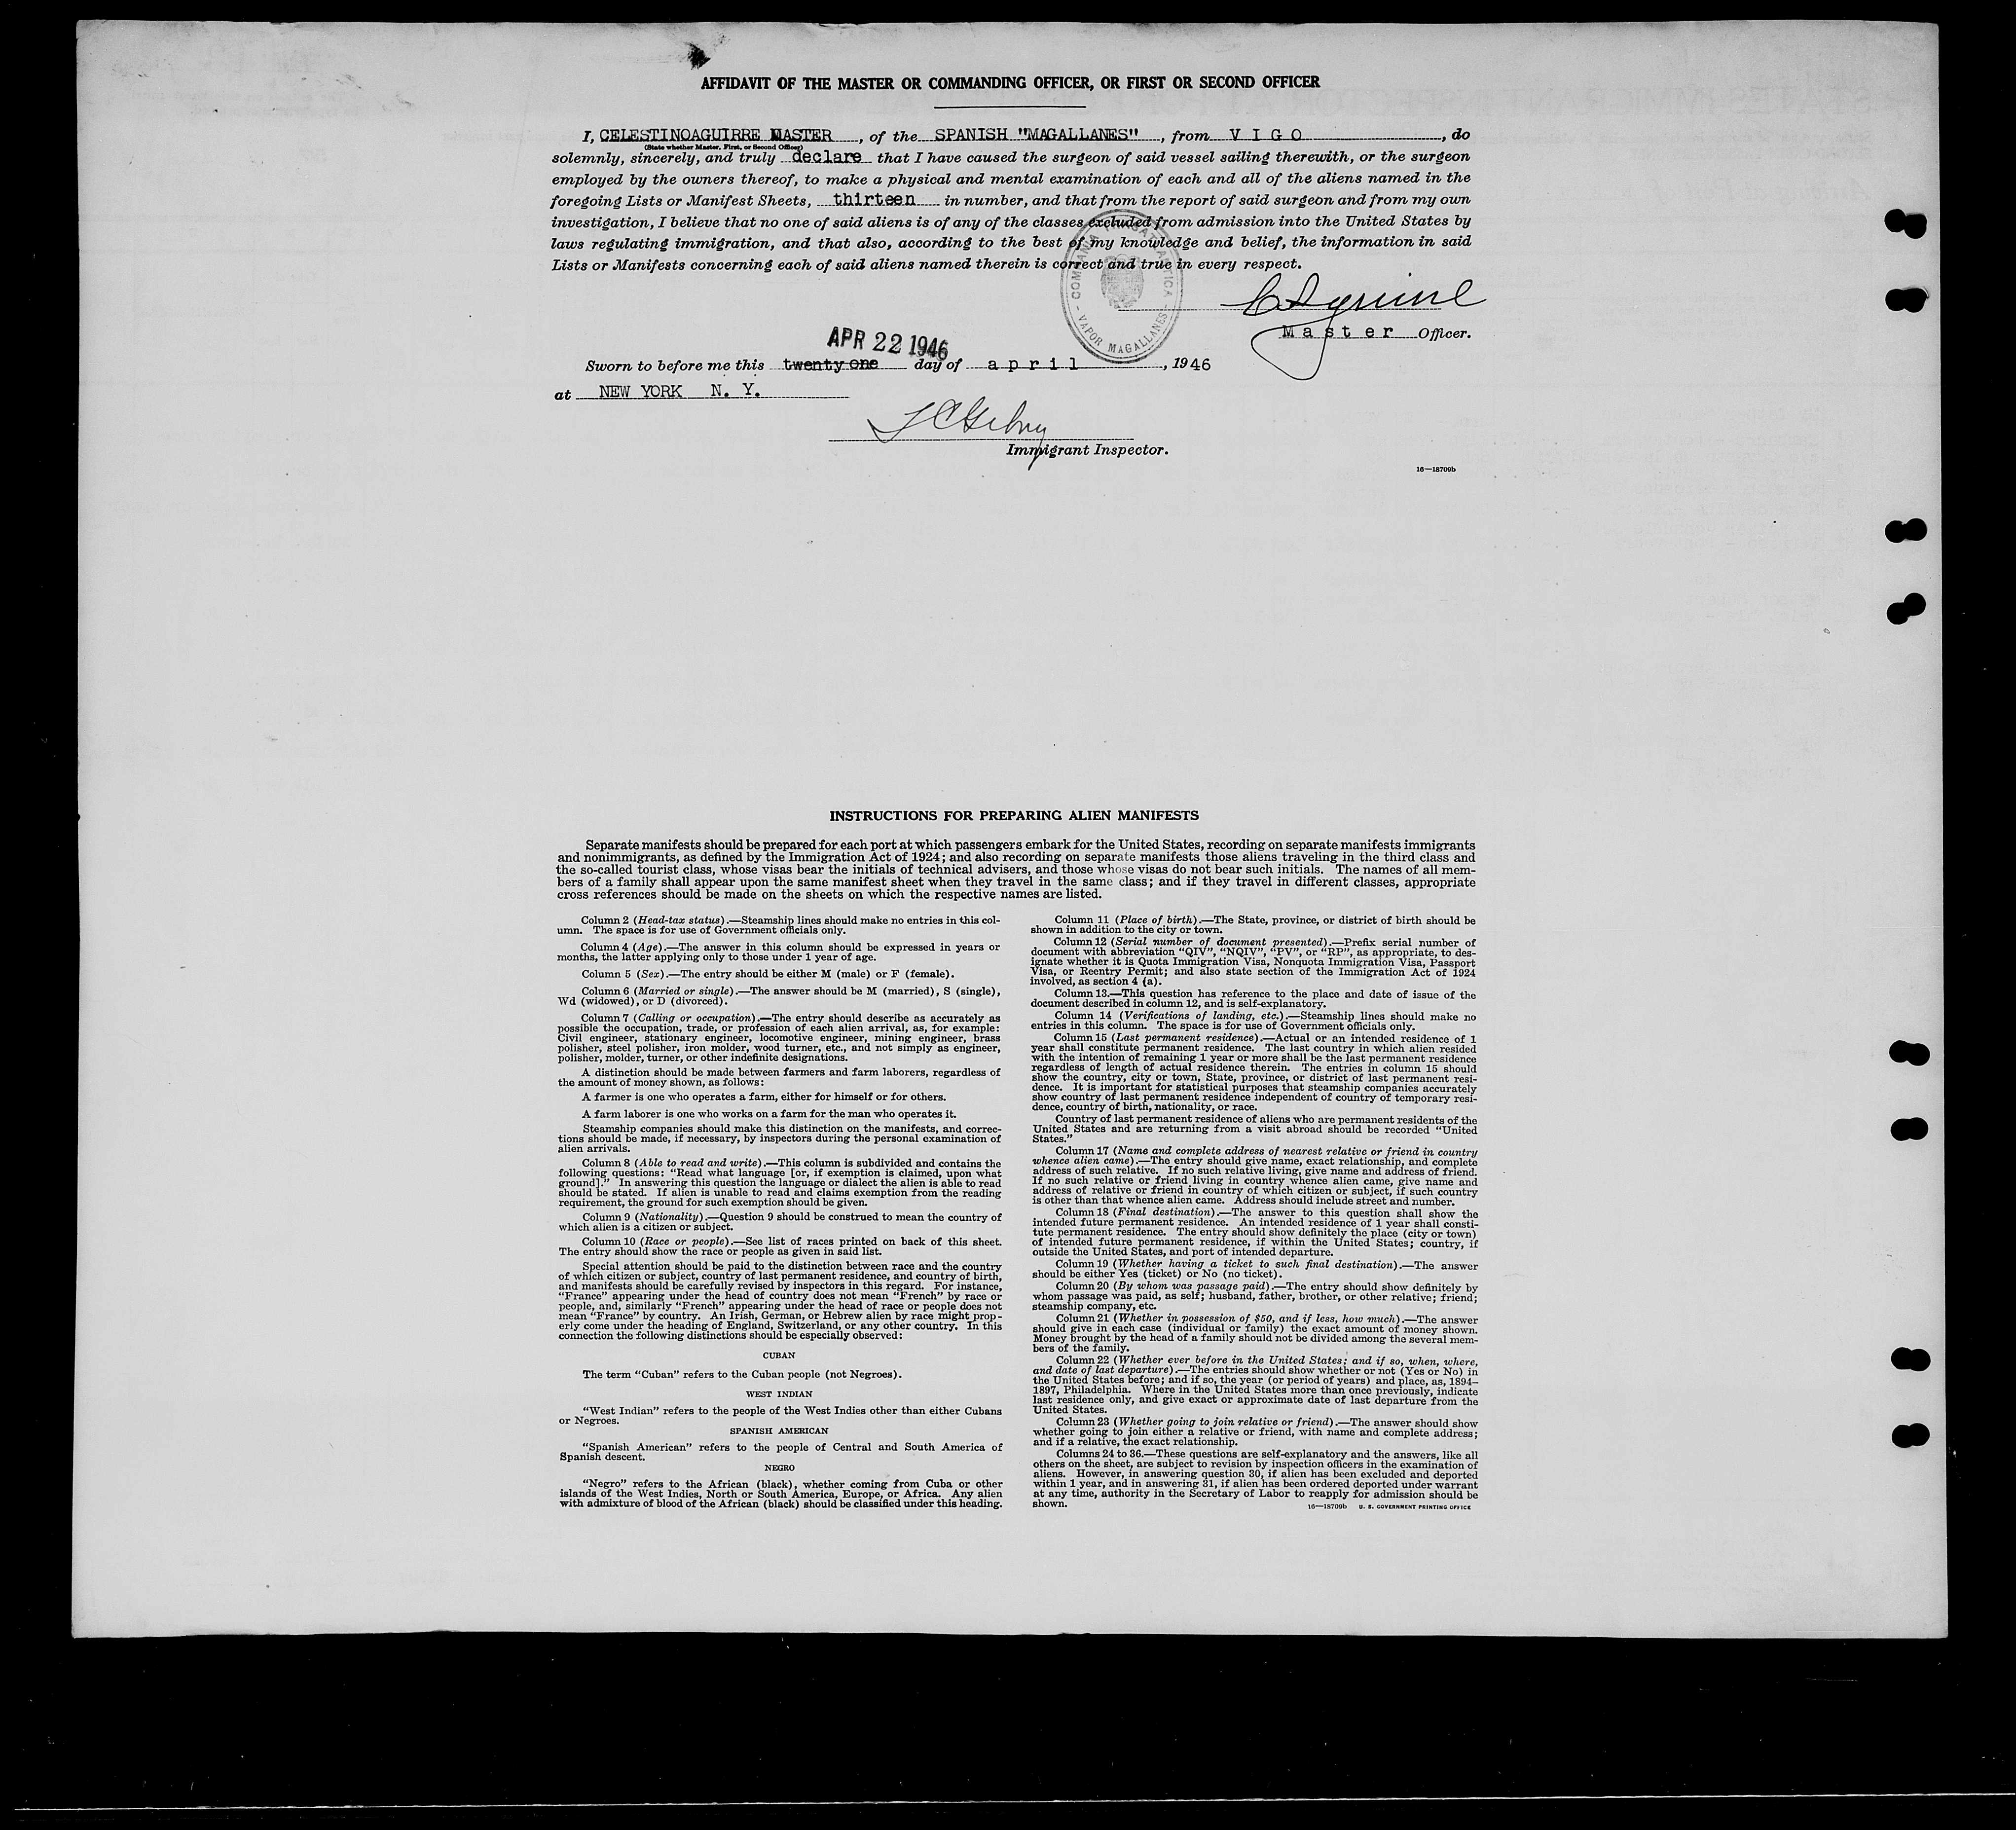 AFFIDAVIT OF THE MASTER OR COMMANDING OFFICER, OR FIRST OR SECOND OFFICER
I, CELESTINOAGUIRRE MASTER, of the SPANISH "MAGALLANES", from V I G O, do
(State whether Master, First, or Second Officer)
solemnly, sincerely, and truly declare that I have caused the surgeon of said vessel sailing therewith, or the surgeon
employed by the owners thereof, to make a physical and mental examination of each and all of the aliens named in the
foregoing Lists or Manifest Sheets, thirteen in number, and that from the report of said surgeon and from my own
investigation, I believe that no one of said aliens is of any of the classes excluded from admission into the United States by
laws regulating immigration, and that also, according to the best of my knowledge and belief, the information in said
Lists or Manifests concerning each of said aliens named therein is correct and true in every respect.
COMPAÑIA TRASATLANTICA - VAPOR MAGALLANES -
Master Officer.
APR 22 1946
Sworn to before me this twenty one day of april, 1946
at NEW YORK N. Y.
Immigrant Inspector.
16—18709b
INSTRUCTIONS FOR PREPARING ALIEN MANIFESTS
Separate manifests should be prepared for each port at which passengers embark for the United States, recording on separate manifests immigrants
and nonimmigrants, as defined by the Immigration Act of 1924; and also recording on separate manifests those aliens traveling in the third class and
the so-called tourist class, whose visas bear the initials of technical advisers, and those whose visas do not bear such initials. The names of all mem-
bers of a family shall appear upon the same manifest sheet when they travel in the same class; and if they travel in different classes, appropriate
cross references should be made on the sheets on which the respective names are listed.
Column 2 (Head-tax status).—Steamship lines should make no entries in this col-
umn. The space is for use of Government officials only.
Column 4 (Age).—The answer in this column should be expressed in years or
months, the latter applying only to those under 1 year of age.
Column 5 (Sex).—The entry should be either M (male) or F (female).
Column 6 (Married or single).—The answer should be M (married), S (single),
Wd (widowed), or D (divorced).
Column 7 (Calling or occupation).—The entry should describe as accurately as
possible the occupation, trade, or profession of each alien arrival, as, for example:
Civil engineer, stationary engineer, locomotive engineer, mining engineer, brass
polisher, steel polisher, iron molder, wood turner, etc., and not simply as engineer,
polisher, molder, turner, or other indefinite designations.
A distinction should be made between farmers and farm laborers, regardless of
the amount of money shown, as follows:
A farmer is one who operates a farm, either for himself or for others.
A farm laborer is one who works on a farm for the man who operates it.
Steamship companies should make this distinction on the manifests, and correc-
tions should be made, if necessary, by inspectors during the personal examination of
alien arrivals.
Column 8 (Able to read and write).—This column is subdivided and contains the
following questions: "Read what language [or, if exemption is claimed, upon what
ground]." In answering this question the language or dialect the alien is able to read
should be stated. If alien is unable to read and claims exemption from the reading
requirement, the ground for such exemption should be given.
Column 9 (Nationality).—Question 9 should be construed to mean the country of
which alien is a citizen or subject.
Column 10 (Race or people).—See list of races printed on back of this sheet.
The entry should show the race or people as given in said list.
Special attention should be paid to the distinction between race and the country
of which citizen or subject, country of last permanent residence, and country of birth,
and manifests should be carefully revised by inspectors in this regard. For instance,
"France" appearing under the head of country does not mean "French" by race or
people, and, similarly "French" appearing under the head of race or people does not
mean "France" by country. An Irish, German, or Hebrew alien by race might prop-
erly come under the heading of England, Switzerland, or any other country. In this
connection the following distinctions should be especially observed:
CUBAN
The term "Cuban" refers to the Cuban people (not Negroes).
WEST INDIAN
"West Indian" refers to the people of the West Indies other than either Cubans
or Negroes.
SPANISH AMERICAN
"Spanish American" refers to the people of Central and South America of
Spanish descent.
NEGRO
"Negro" refers to the African (black), whether coming from Cuba or other
islands of the West Indies, North or South America, Europe, or Africa. Any alien
with admixture of blood of the African (black) should be classified under this heading.
Column 11 (Place of birth).—The State, province, or district of birth should be
shown in addition to the city or town.
Column 12 (Serial number of document presented).—Prefix serial number of
document with abbreviation "QIV", "NQIV", "PV", or "RP", as appropriate, to des-
ignate whether it is Quota Immigration Visa, Nonquota Immigration Visa, Passport
Visa, or Reentry Permit; and also state section of the Immigration Act of 1924
involved, as section 4 (a).
Column 13.—This question has reference to the place and date of issue of the
document described in column 12, and is self-explanatory.
Column 14 (Verifications of landing, etc.).—Steamship lines should make no
entries in this column. The space is for use of Government officials only.
Column 15 (Last permanent residence).—Actual or an intended residence of 1
year shall constitute permanent residence. The last country in which alien resided
with the intention of remaining 1 year or more shall be the last permanent residence
regardless of length of actual residence therein. The entries in column 15 should
show the country, city or town, State, province, or district of last permanent resi-
dence. It is important for statistical purposes that steamship companies accurately
show country of last permanent residence independent of country of temporary resi-
dence, country of birth, nationality, or race.
Country of last permanent residence of aliens who are permanent residents of the
United States and are returning from a visit abroad should be recorded "United
States."
Column 17 (Name and complete address of nearest relative or friend in country
whence alien came).—The entry should give name, exact relationship, and complete
address of such relative. If no such relative living, give name and address of friend.
If no such relative or friend living in country whence alien came, give name and
address of relative or friend in country of which citizen or subject, if such country
is other than that whence alien came. Address should include street and number.
Column 18 (Final destination).—The answer to this question shall show the
intended future permanent residence. An intended residence of 1 year shall consti-
tute permanent residence. The entry should show definitely the place (city or town)
of intended future permanent residence, if within the United States; country, if
outside the United States, and port of intended departure.
Column 19 (Whether having a ticket to such final destination).—The answer
should be either Yes (ticket) or No (no ticket).
Column 20 (By whom was passage paid).—The entry should show definitely by
whom passage was paid, as self; husband, father, brother, or other relative; friend;
steamship company, etc.
Column 21 (Whether in possession of $50, and if less, how much).—The answer
should give in each case (individual or family) the exact amount of money shown.
Money brought by the head of a family should not be divided among the several mem-
bers of the family.
Column 22 (Whether ever before in the United States; and if so, when, where,
and date of last departure).—The entries should show whether or not (Yes or No) in
the United States before; and if so, the year (or period of years) and place, as, 1894–
1897, Philadelphia. Where in the United States more than once previously, indicate
last residence only, and give exact or approximate date of last departure from the
United States.
Column 23 (Whether going to join relative or friend).—The answer should show
whether going to join either a relative or friend, with name and complete address;
and if a relative, the exact relationship.
Columns 24 to 36.—These questions are self-explanatory and the answers, like all
others on the sheet, are subject to revision by inspection officers in the examination of
aliens. However, in answering question 30, if alien has been excluded and deported
within 1 year, and in answering 31, if alien has been ordered deported under warrant
at any time, authority in the Secretary of Labor to reapply for admission should be
shown.
16—18709b U. S. GOVERNMENT PRINTING OFFICE